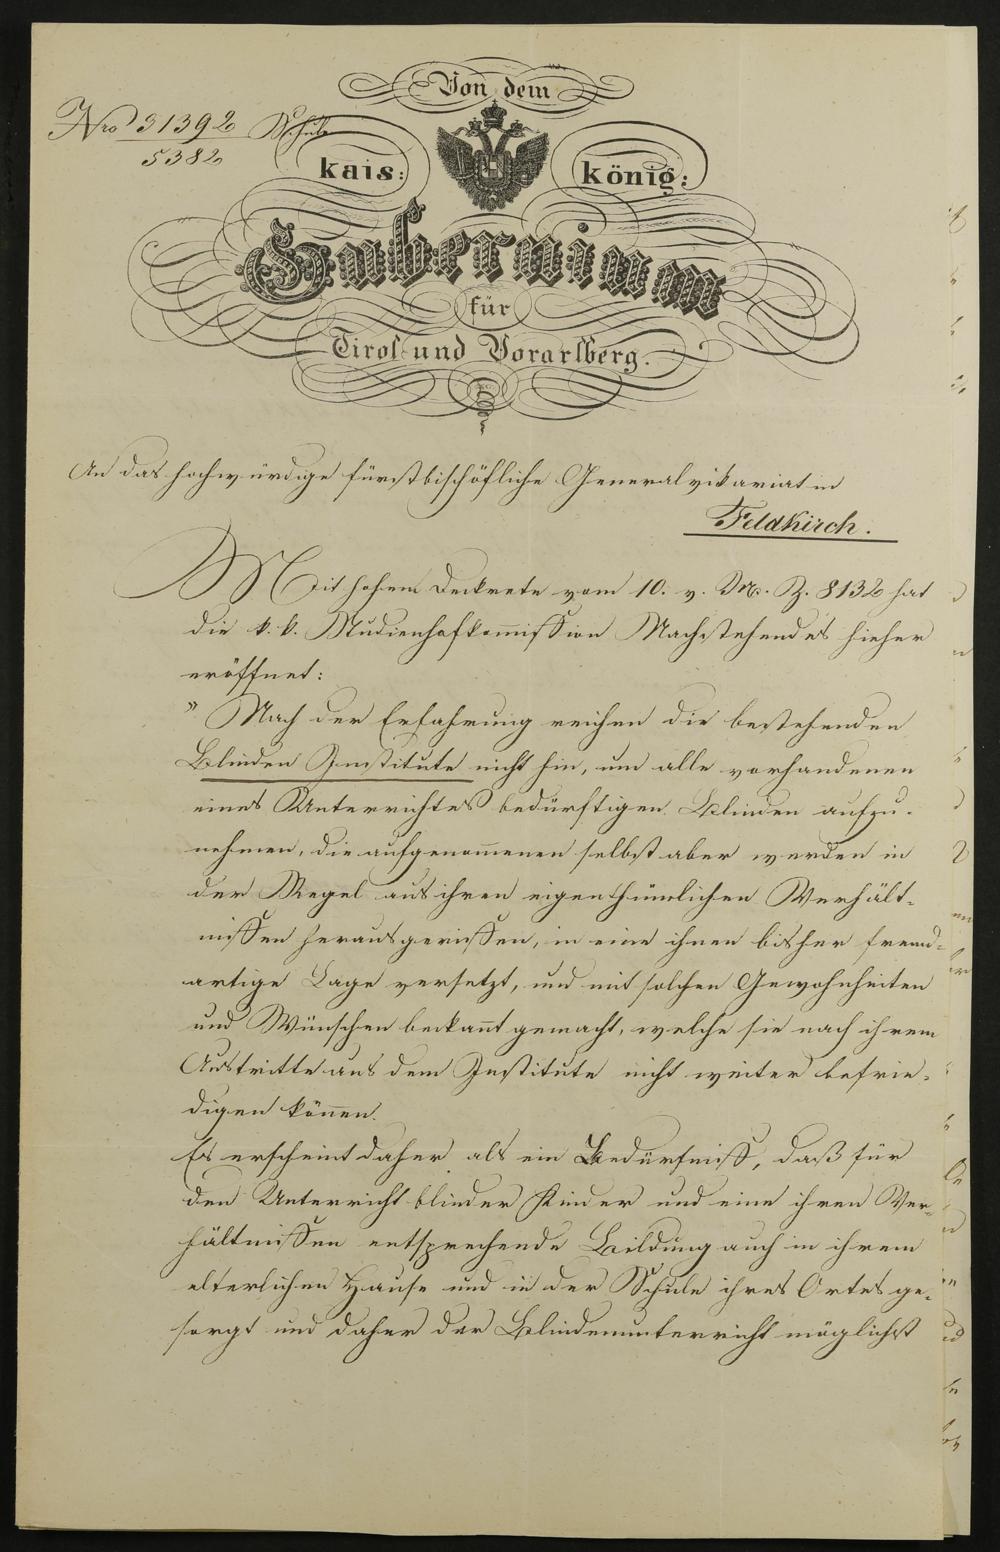 Von dem
Nro 31392 Schule
5382
kais: könig:
Gubernium
für
Tirol und Vorarlberg.
An das hochwürdige fürstbischöfliche Generalvikariat in
Feldkirch.
Mit hohem Dekrete vom 10. v. M. Z. 8132 hat
die k. k. Studienhofkom̅ission Nachstehendes hieher
eröffnet:
" Nach der Erfahrung reichen die bestehenden
Blinden Institute nicht hin, um alle vorhandenen
eines Unterrichtes bedürftigen Blinden aufzu-
nehmen, die aufgenom̅enen selbst aber werden in
der Regel aus ihren eigenthümlichen Verhält-
nissen herausgerissen, in eine ihnen bisher fremd-
artige Lage versetzt, und mit solchen Gewohnheiten
und Wünschen bekan̅t gemacht, welche sie nach ihrem
Austritte aus dem Institute nicht weiter befrie-
digen kön̅en.
Es erscheint daher als ein Bedürfniß, daß für
den Unterricht blinder Kinder und eine ihren Ver-
hältnissen entsprechende Bildung auch in ihrem
elterlichen Hause und in der Schule ihres Ortes ge-
sorgt und daher der Blindenunterricht möglichst